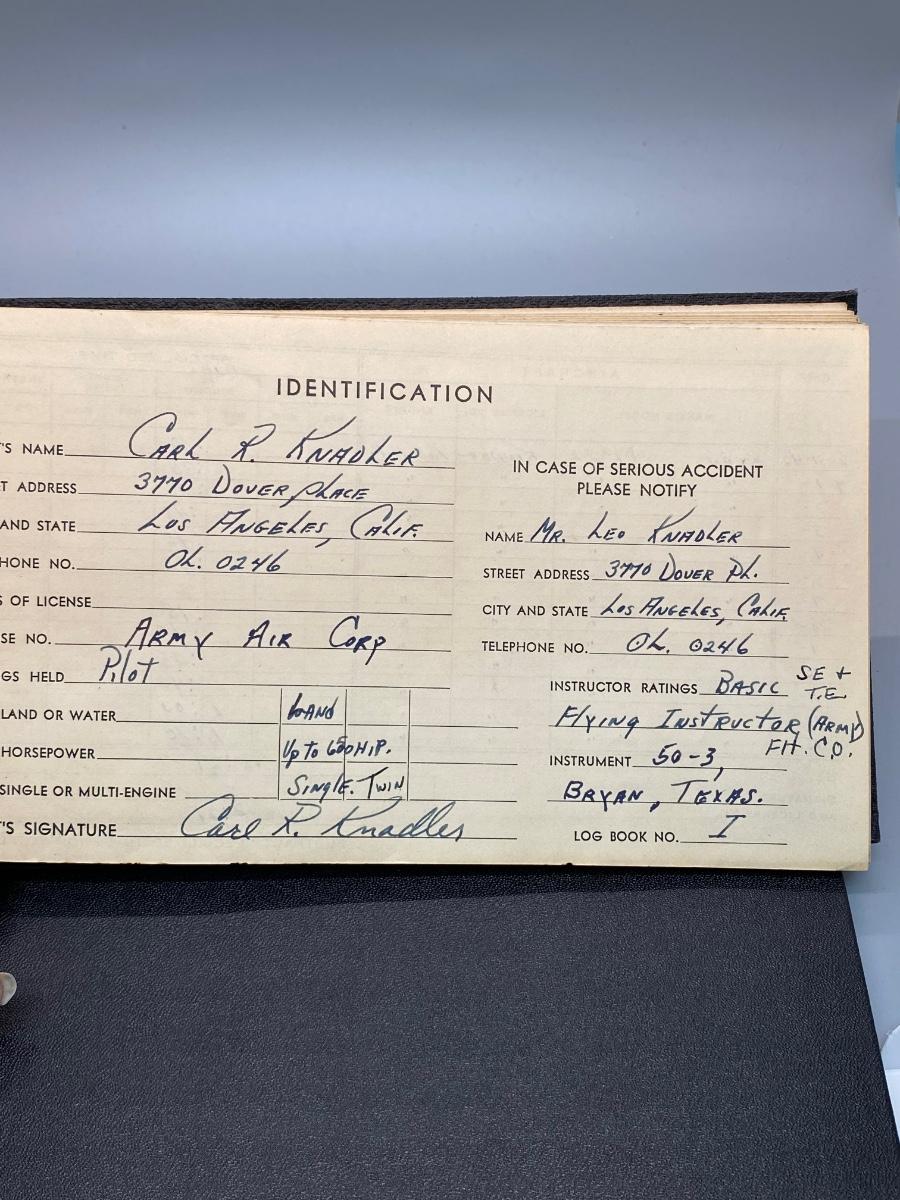 IDENTIFICATION
'S NAME CARL R. KNADLER
T ADDRESS 3770 DOVER PLACE
AND STATE LOS ANGELES, CALIF.
HONE NO. OL. 0246
S OF LICENSE
SE NO. ARMY AIR CORP
GS HELD Pilot
LAND OR WATER LAND
HORSEPOWER Up to 650 H.P.
SINGLE OR MULTI-ENGINE SINGLE. TWIN
'S SIGNATURE Carl R. Knadler
IN CASE OF SERIOUS ACCIDENT
PLEASE NOTIFY
NAME MR. LEO KNADLER
STREET ADDRESS 3770 DOVER PL.
CITY AND STATE LOS ANGELES, CALIF.
TELEPHONE NO. OL. 0246
INSTRUCTOR RATINGS BASIC SE + T.E.
FLYING INSTRUCTOR (ARMY)
INSTRUMENT 50-3,
BRYAN, TEXAS.
LOG BOOK NO. I